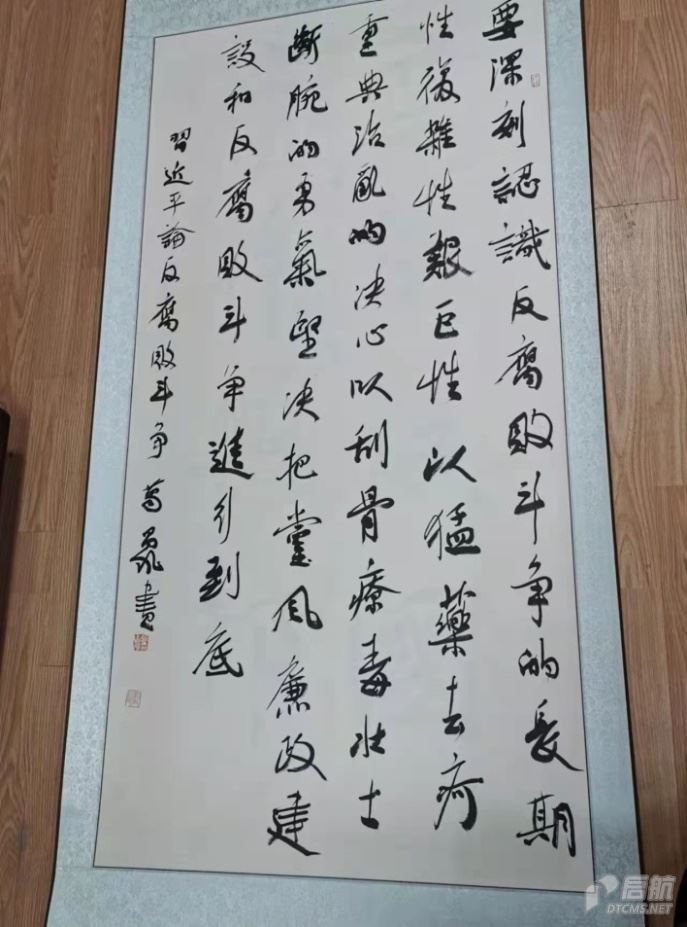 要深刻認識反腐敗斗争的長期
性復雜性艱巨性以猛藥去疴
重典治亂的决心以刮骨療毒壯士
斷腕的勇氣堅决把黨風廉政建
設和反腐敗斗争進行到底
習近平論反腐敗斗争
启航
DTCMS.NET